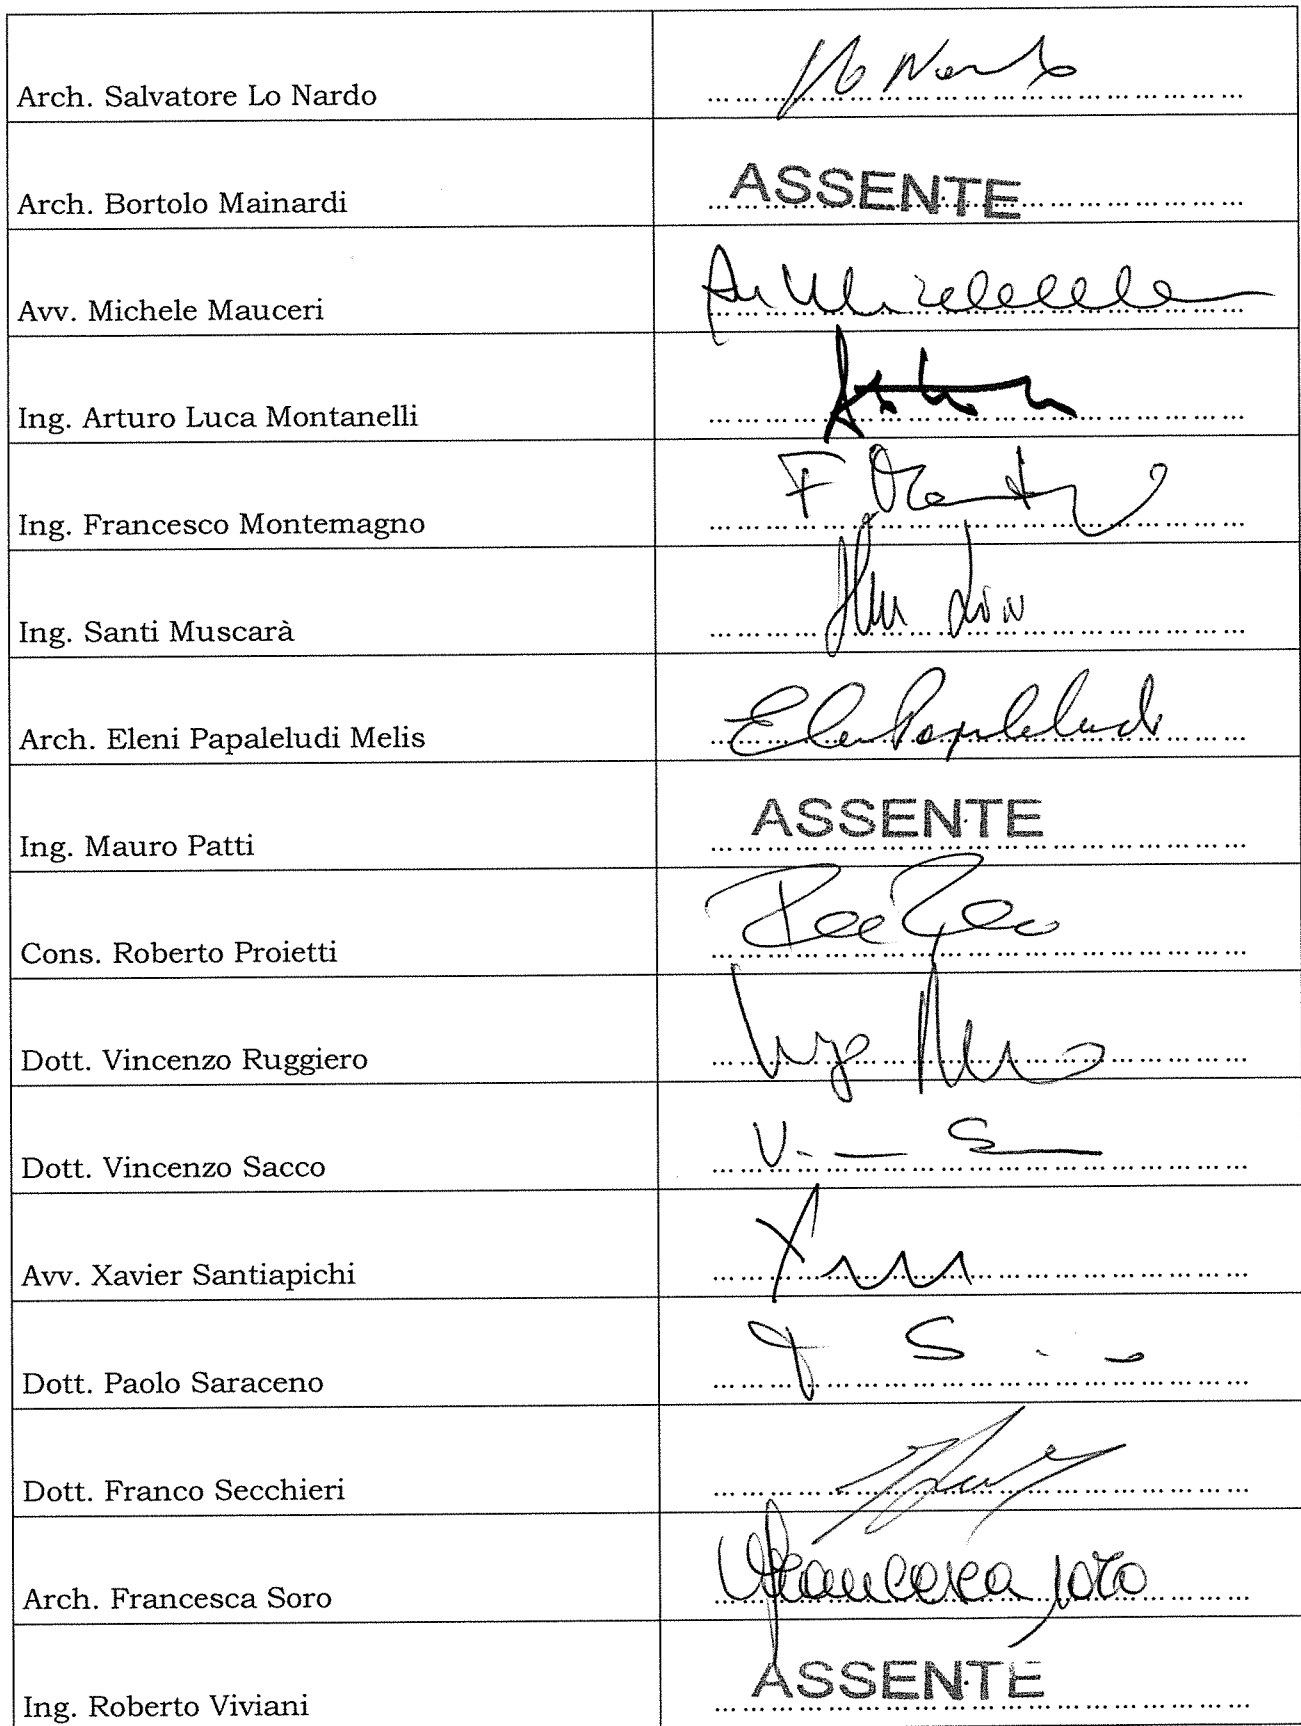 Arch. Salvatore Lo Nardo
Lo Nardo
Arch. Bortolo Mainardi
ASSENTE
Avv. Michele Mauceri
Ing. Arturo Luca Montanelli
Ing. Francesco Montemagno
Ing. Santi Muscarà
Arch. Eleni Papaleludi Melis
Elen Papaleludi
Ing. Mauro Patti
ASSENTE
Cons. Roberto Proietti
Dott. Vincenzo Ruggiero
Dott. Vincenzo Sacco
Avv. Xavier Santiapichi
Dott. Paolo Saraceno
Dott. Franco Secchieri
Arch. Francesca Soro
Francesca Soro
Ing. Roberto Viviani
ASSENTE